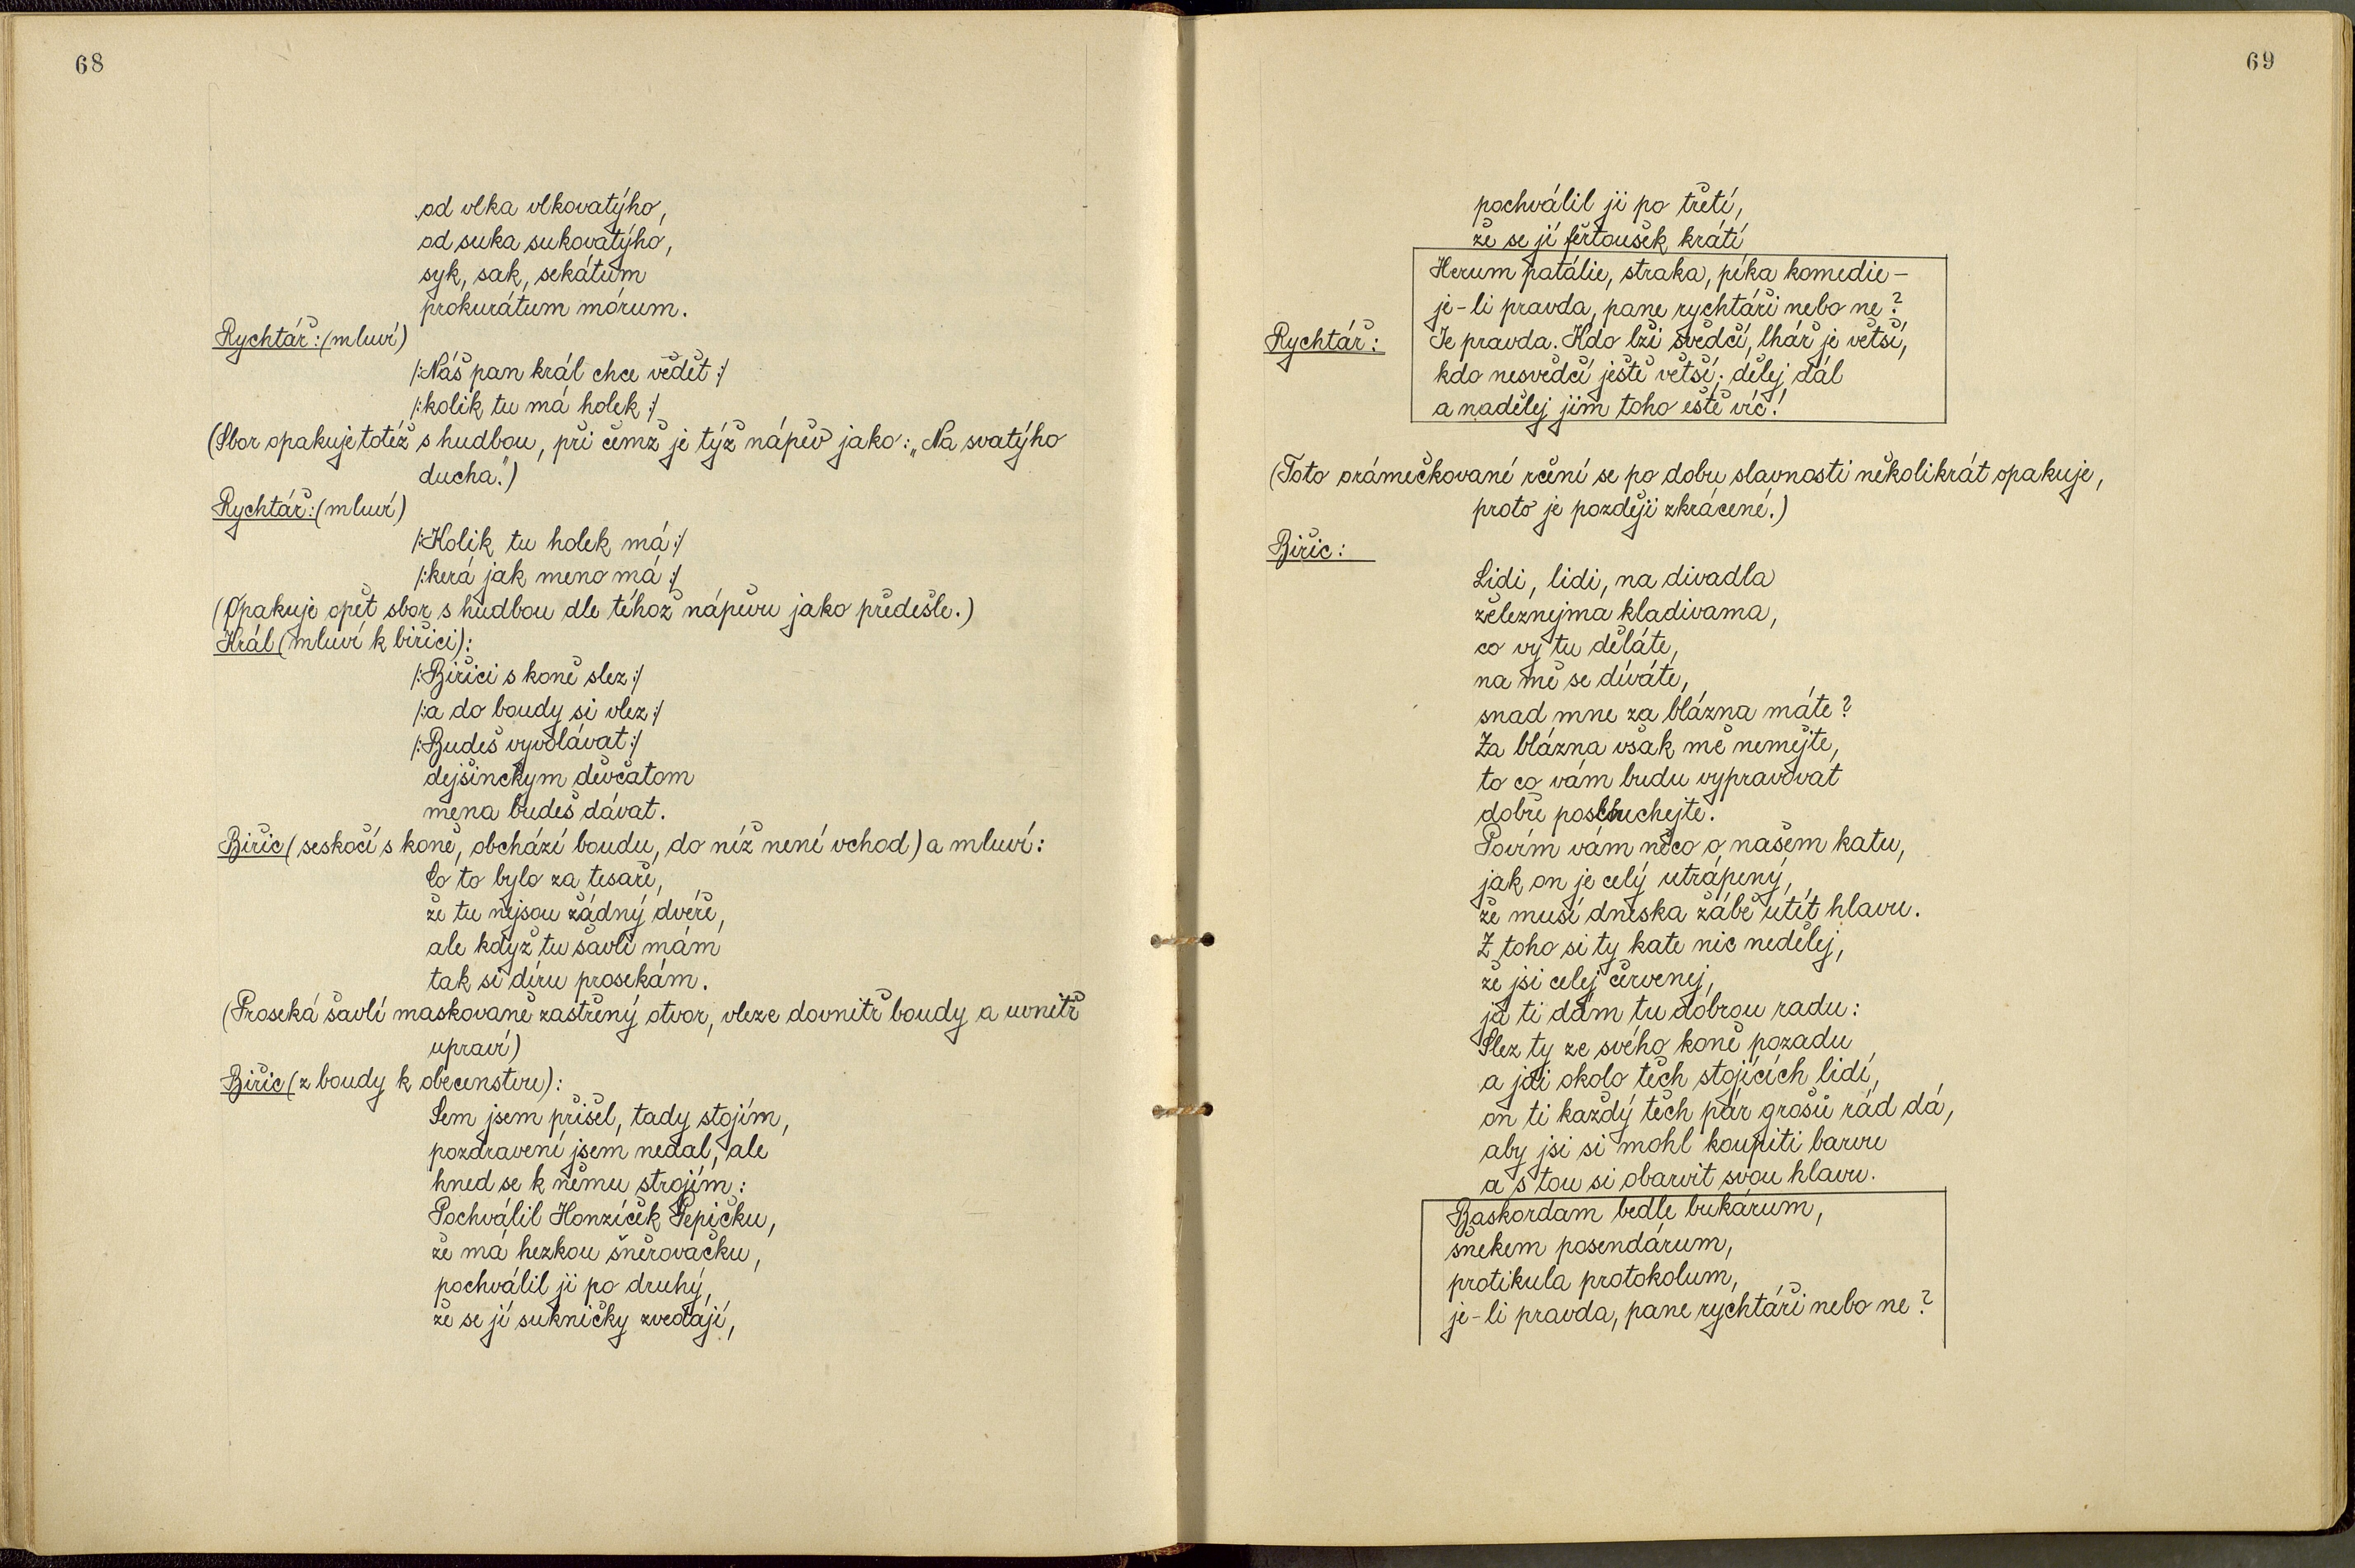 68
od vlka vlkovatýho,
od suka sukovatýho,
syk, sak, sekátum
prokurátum mórum.
Rychtář: (mluví)
/:Náš pan král chce vědět:/
/:kolik tu má holek:/
(Sbor opakuje totéž s hudbou, při čemž je týž nápěv jako: „Na svatýho
ducha.")
Rychtář: (mluví)
/:Kolik tu holek má:/
/:kerá jak meno má:/
(Opakuje opět sbor s hudbou dle téhož nápěvu jako předešle.)
Král (mluví k biřici):
/:Biřici s koně slez:/
/:a do boudy si vlez:/
/:Budeš vyvolávat:/
dejšinckym děvčatom
mena budeš dávat.
Biřic (seskočí s koně, obchází boudu, do níž není vchod) a mluví:
Co to bylo za tesaře,
že tu nejsou žádný dvéře,
ale když tu šavli mám
tak si díru prosekám.
(Proseká šavlí maskovaně zastřený otvor, vleze dovnitř boudy a uvnitř
upraví)
Biřic (z boudy k obecenstvu):
Sem jsem přišel, tady stojím,
pozdravení jsem nedal, ale
hned se k němu strojím:
Pochválil Honzíček Pepičku,
že má hezkou šněrovačku,
pochválil ji po druhý,
že se jí sukničky zvedají,
69
pochválil ji po třetí,
že se jí fěrtoušek krátí
Herum patálie, straka, píka komedie –
je-li pravda, pane rychtáři nebo ne?
Rychtář: Je pravda. Kdo lži svědčí, lhář je větší,
kdo nesvědčí ještě větší; dělej dál
a nadělej jim toho eště víc!
(Toto orámečkované rčení se po dobu slavnosti několikrát opakuje,
proto je později zkrácené.)
Biřic:
Lidi, lidi, na divadla
železnejma kladivama,
co vy tu děláte,
na mě se díváte,
snad mne za blázna máte?
Za blázna však mě nemějte,
to co vám budu vypravovat
dobře poslouchejte.
Povím vám něco o našem katu,
jak on je celý utrápený,
že musí dneska žábě utít hlavu.
Z toho si ty kate nic nedělej,
že jsi celej červenej,
já ti dám tu dobrou radu:
Slez ty ze svého koně pozadu
a jdi okolo těch stojících lidí,
on ti každý těch pár grošů rád dá,
aby jsi si mohl koupiti barvu
a s tou si obarvit svou hlavu.
Baskordam bedle bukárum,
šnekem posendárum,
protikula protokolum,
je-li pravda, pane rychtáři nebo ne?